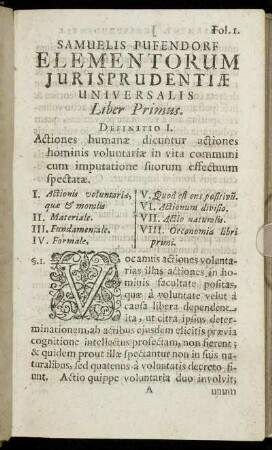 Fol. 1.
SAMUELIS PUFENDORF
ELEMENTORUM
JURISPRUDENTIÆ
UNIVERSALIS
Liber Primus.
DEFINITIO I.
Actiones humanæ dicuntur actiones
hominis voluntariæ in vita communi
cum imputatione suorum effectuum
spectatæ.
I. Actionis voluntaria,
quæ & moralis
II. Materiale.
III. Fundamentale.
IV. Formale.
V. Quod est ens positivũ.
VI. Actionum divisio.
VII. Actio naturalis.
VIII. Oeconomia libri
primi.
§.1. Vocamus actiones volunta-
rias illas actiones, in ho-
minis facultate positas,
quæ à voluntate velut à
causa libera dependent
ita, ut citra ipsius deter-
minationem, ab actibus ejusdem elicitis prævia
cognitione intellectus profectam, non fierent;
& quidem prout illæ spectantur non in suis na-
turalibus, sed quatenus à voluntatis decreto fi-
unt. Actio quippe voluntaria duo involvit;
A unum